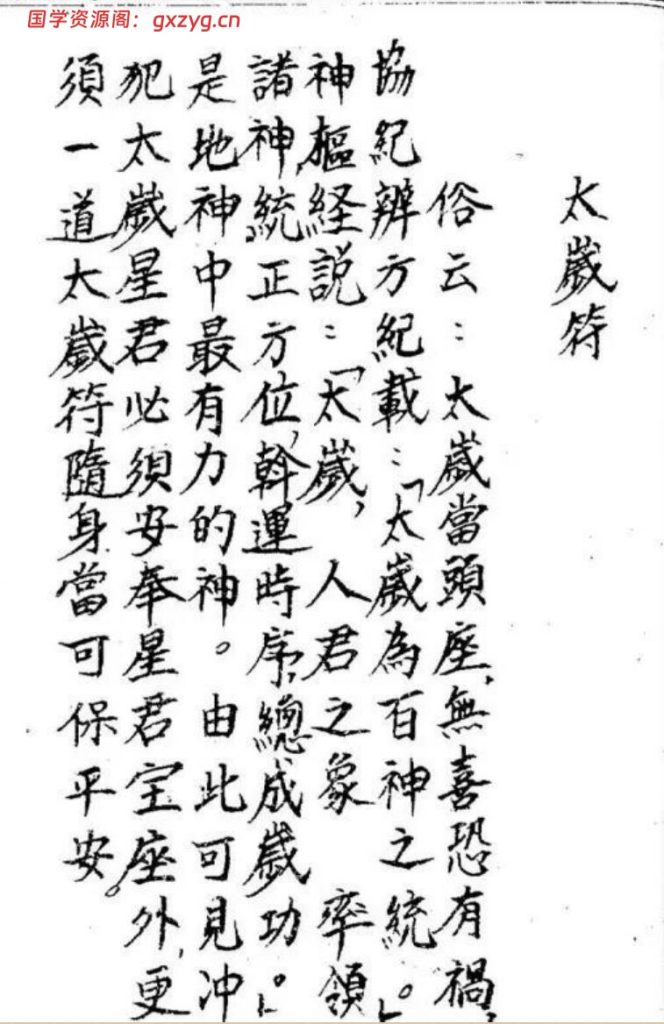 国学资源阁：gxzyg.cn
太歲符
俗云：太歲當頭座，無喜恐有禍，
協紀辨方紀載：「太歲為百神之統。」
神樞経説：「太歲，人君之象 率領
諸神，統正方位，斡運時序，總成歲功。」
是地神中最有力的神。由此可見冲
犯太歲星君必須安奉星君宝座外，更
須一道太歲符隨身當可保平安。